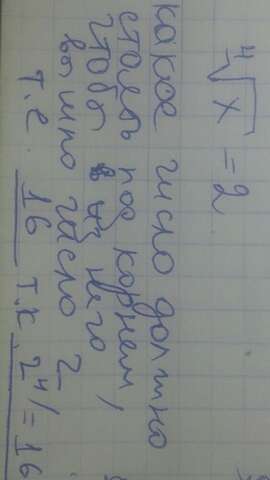 ⁴√x = 2
какое число должно
стоять под корнем,
чтобы из него
вышло число 2
т.е. 16 т.к. 2⁴ = 16